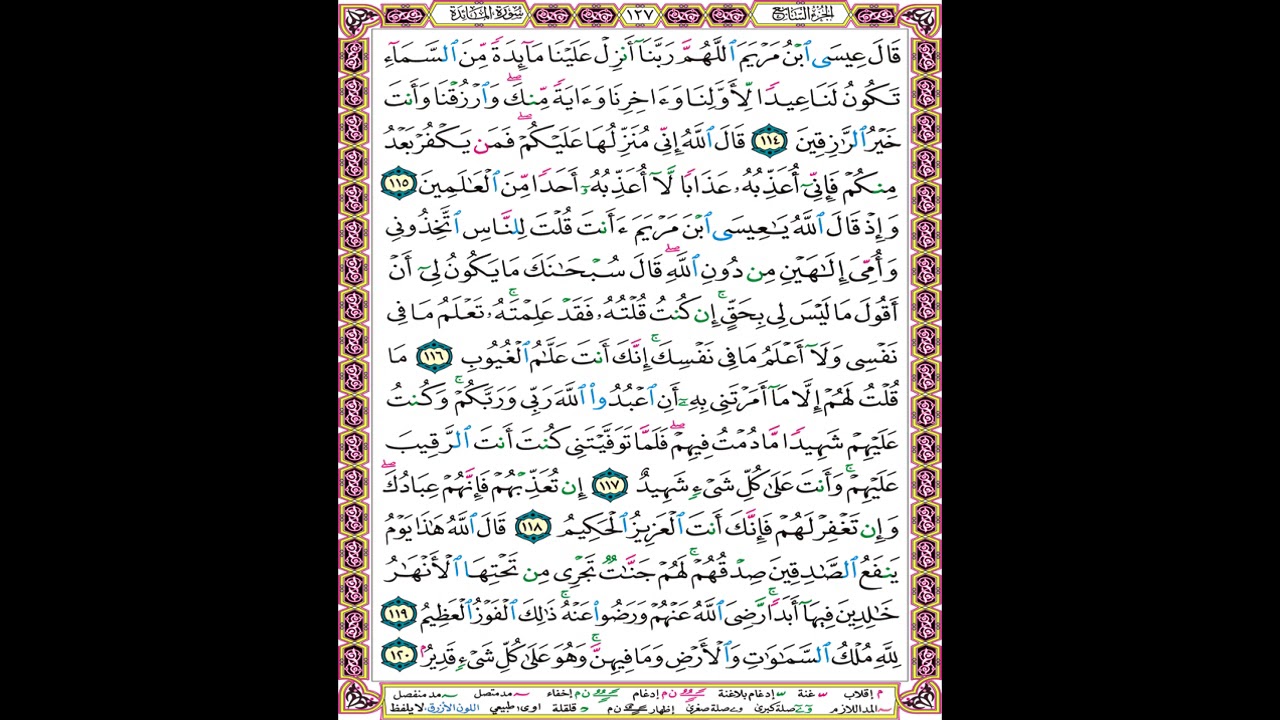 الجزء السابع ١٢٧ سورة المائدة
قَالَ عِيسَى ٱبْنُ مَرْيَمَ ٱللَّهُمَّ رَبَّنَآ أَنزِلْ عَلَيْنَا مَآئِدَةً مِّنَ ٱلسَّمَآءِ
تَكُونُ لَنَا عِيدًا لِّأَوَّلِنَا وَءَاخِرِنَا وَءَايَةً مِّنكَۖ وَٱرْزُقْنَا وَأَنتَ
خَيْرُ ٱلرَّٰزِقِينَ ١١٤ قَالَ ٱللَّهُ إِنِّى مُنَزِّلُهَا عَلَيْكُمْۖ فَمَن يَكْفُرْ بَعْدُ
مِنكُمْ فَإِنِّىٓ أُعَذِّبُهُۥ عَذَابًا لَّآ أُعَذِّبُهُۥٓ أَحَدًا مِّنَ ٱلْعَٰلَمِينَ ١١٥
وَإِذْ قَالَ ٱللَّهُ يَٰعِيسَى ٱبْنَ مَرْيَمَ ءَأَنتَ قُلْتَ لِلنَّاسِ ٱتَّخِذُونِى
وَأُمِّىَ إِلَٰهَيْنِ مِن دُونِ ٱللَّهِۖ قَالَ سُبْحَٰنَكَ مَا يَكُونُ لِىٓ أَنْ
أَقُولَ مَا لَيْسَ لِى بِحَقٍّۚ إِن كُنتُ قُلْتُهُۥ فَقَدْ عَلِمْتَهُۥۚ تَعْلَمُ مَا فِى
نَفْسِى وَلَآ أَعْلَمُ مَا فِى نَفْسِكَۚ إِنَّكَ أَنتَ عَلَّٰمُ ٱلْغُيُوبِ ١١٦ مَا
قُلْتُ لَهُمْ إِلَّا مَآ أَمَرْتَنِى بِهِۦٓ أَنِ ٱعْبُدُوا۟ ٱللَّهَ رَبِّى وَرَبَّكُمْۚ وَكُنتُ
عَلَيْهِمْ شَهِيدًا مَّا دُمْتُ فِيهِمْۖ فَلَمَّا تَوَفَّيْتَنِى كُنتَ أَنتَ ٱلرَّقِيبَ
عَلَيْهِمْۚ وَأَنتَ عَلَىٰ كُلِّ شَىْءٍ شَهِيدٌ ١١٧ إِن تُعَذِّبْهُمْ فَإِنَّهُمْ عِبَادُكَۖ
وَإِن تَغْفِرْ لَهُمْ فَإِنَّكَ أَنتَ ٱلْعَزِيزُ ٱلْحَكِيمُ ١١٨ قَالَ ٱللَّهُ هَٰذَا يَوْمُ
يَنفَعُ ٱلصَّٰدِقِينَ صِدْقُهُمْۚ لَهُمْ جَنَّٰتٌ تَجْرِى مِن تَحْتِهَا ٱلْأَنْهَٰرُ
خَٰلِدِينَ فِيهَآ أَبَدًاۚ رَّضِىَ ٱللَّهُ عَنْهُمْ وَرَضُوا۟ عَنْهُۚ ذَٰلِكَ ٱلْفَوْزُ ٱلْعَظِيمُ ١١٩
لِلَّهِ مُلْكُ ٱلسَّمَٰوَٰتِ وَٱلْأَرْضِ وَمَا فِيهِنَّۚ وَهُوَ عَلَىٰ كُلِّ شَىْءٍ قَدِيرٌۢ ١٢٠
م إقلاب غنة إدغام بلاغنة ن م إدغام ن م إخفاء مد متصل مد منفصل
المد اللازم صلة كبرى صلة صغرى إظهار ن م قلقلة اوى طبيعي اللون الأزرق لا يلفظ